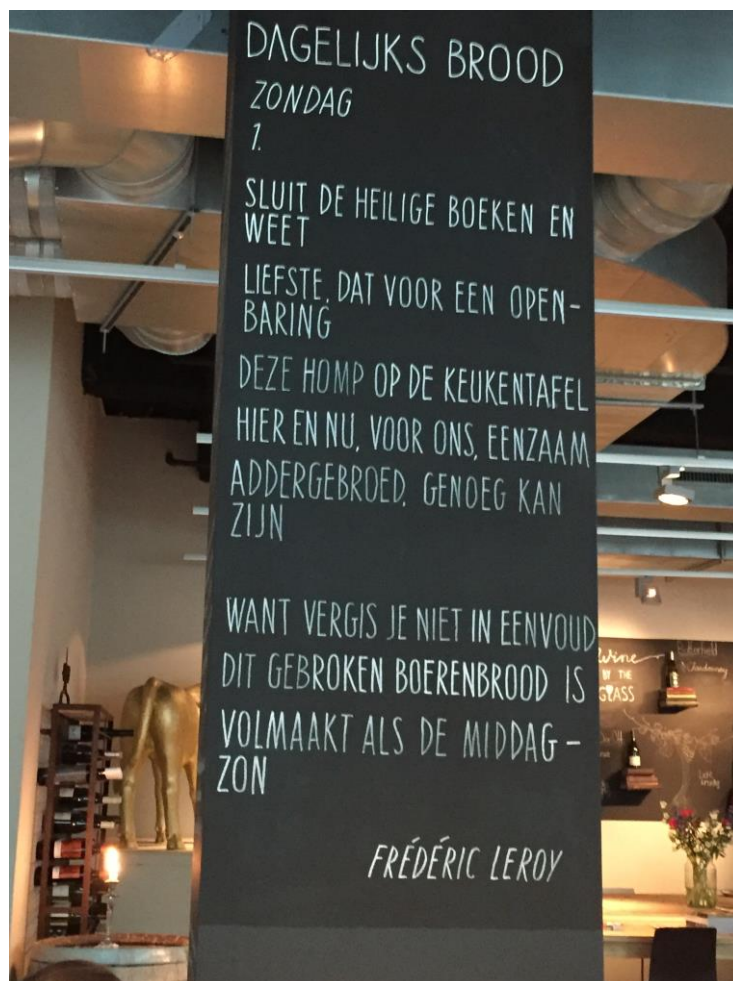 DAGELIJKS BROOD
ZONDAG
1.
SLUIT DE HEILIGE BOEKEN EN
WEET
LIEFSTE, DAT VOOR EEN OPEN-
BARING
DEZE HOMP OP DE KEUKENTAFEL
HIER EN NU, VOOR ONS, EENZAAM
ADDERGEBROED, GENOEG KAN
ZIJN
WANT VERGIS JE NIET IN EENVOUD
DIT GEBROKEN BOERENBROOD IS
VOLMAAKT ALS DE MIDDAG-
ZON
FRÉDÉRIC LEROY
Wine
BY THE
GLASS